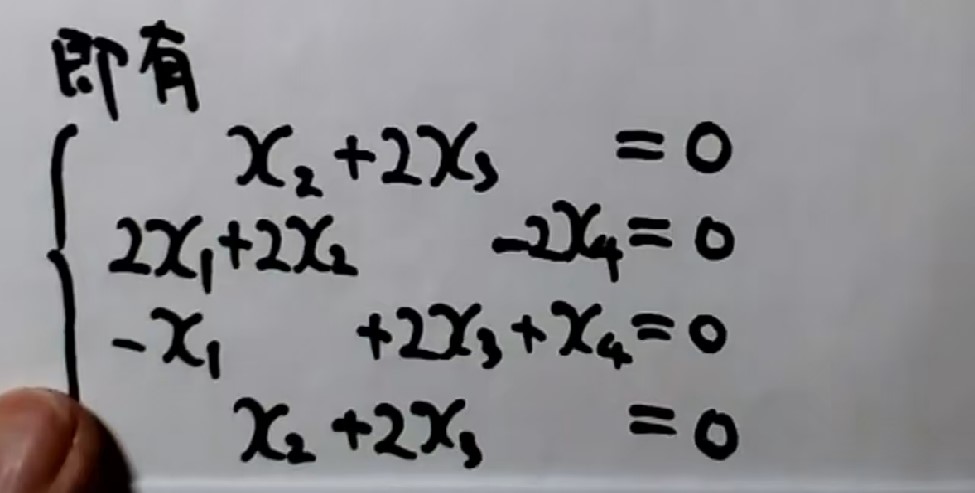 即有
x₂+2x₃=0
2x₁+2x₂-2x₄=0
-x₁+2x₃+x₄=0
x₂+2x₃=0